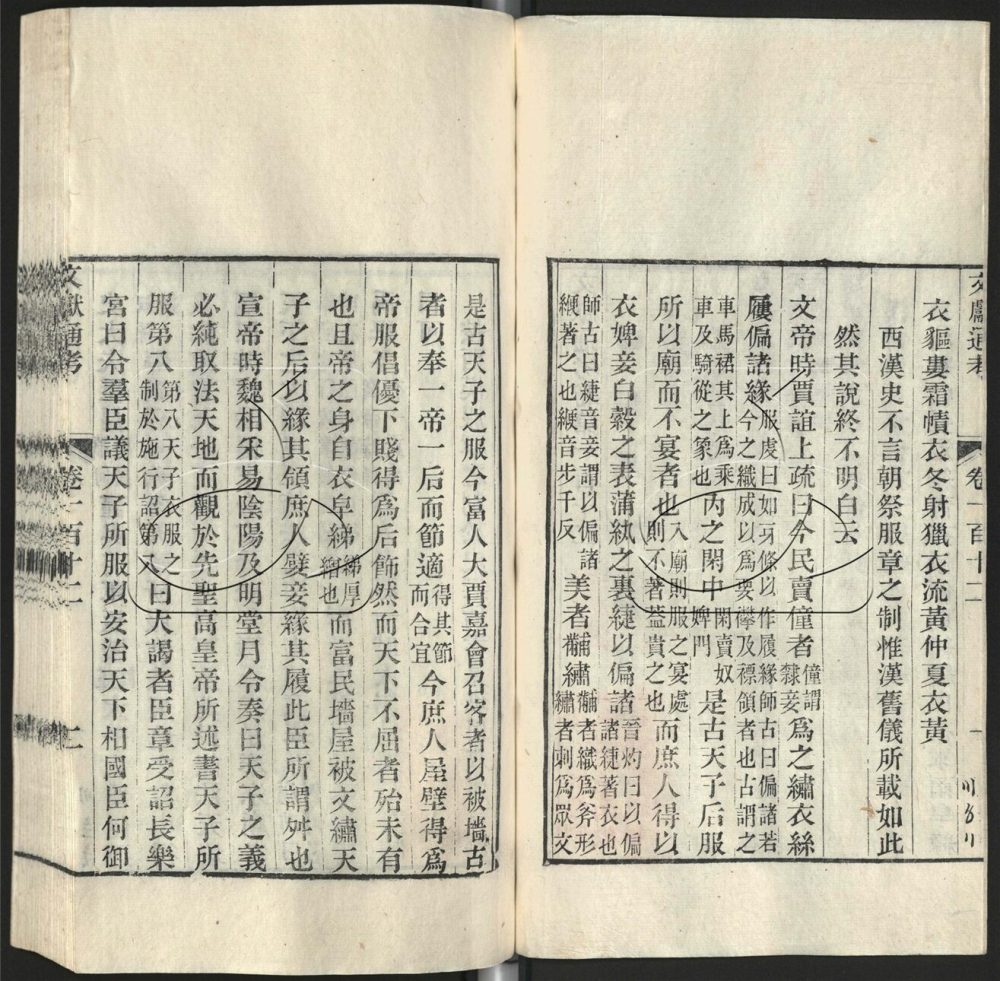 文獻通考 卷一百十二 一
衣貙婁霜幘衣冬射獵衣流黃仲夏衣黃
西漢史不言朝祭服章之制惟漢舊儀所載如此
然其說終不明白云
文帝時賈誼上疏曰今民賣僮者僮謂隸妾爲之繡衣絲
屨偏諸緣服虔曰如牙條以作履緣師古曰偏諸若今之織成以爲要襻及褾領者也古謂之
車馬裙其上爲乘車及騎從之象也內之閑中閑賣奴婢門是古天子后服
所以廟而不宴者也入廟則服之宴處則不著蓋貴之也而庶人得以
衣婢妾白縠之表蒲紈之裏緁以偏諸晉灼曰以偏諸緁著衣也
師古曰緁音妾謂以偏諸緶著之也緶音步千反美者黼繡黼者織爲斧形繡者刺爲眾文
是古天子之服今富人大賈嘉會召客者以被墻古
者以奉一帝一后而節適得其節而合宜今庶人屋壁得爲
帝服倡優下賤得爲后飾然而天下不屈者殆未有
也且帝之身自衣皁綈綈厚繒也而富民墻屋被文繡天
子之后以緣其領庶人孽妾緣其履此臣所謂舛也
宣帝時魏相采易陰陽及明堂月令奏曰天子之義
必純取法天地而觀於先聖高皇帝所述書天子所
服第八第八天子衣服之制於施行詔第八曰大謁者臣章受詔長樂
宮曰令羣臣議天子所服以安治天下相國臣何御
文獻通考 卷一百十二 二